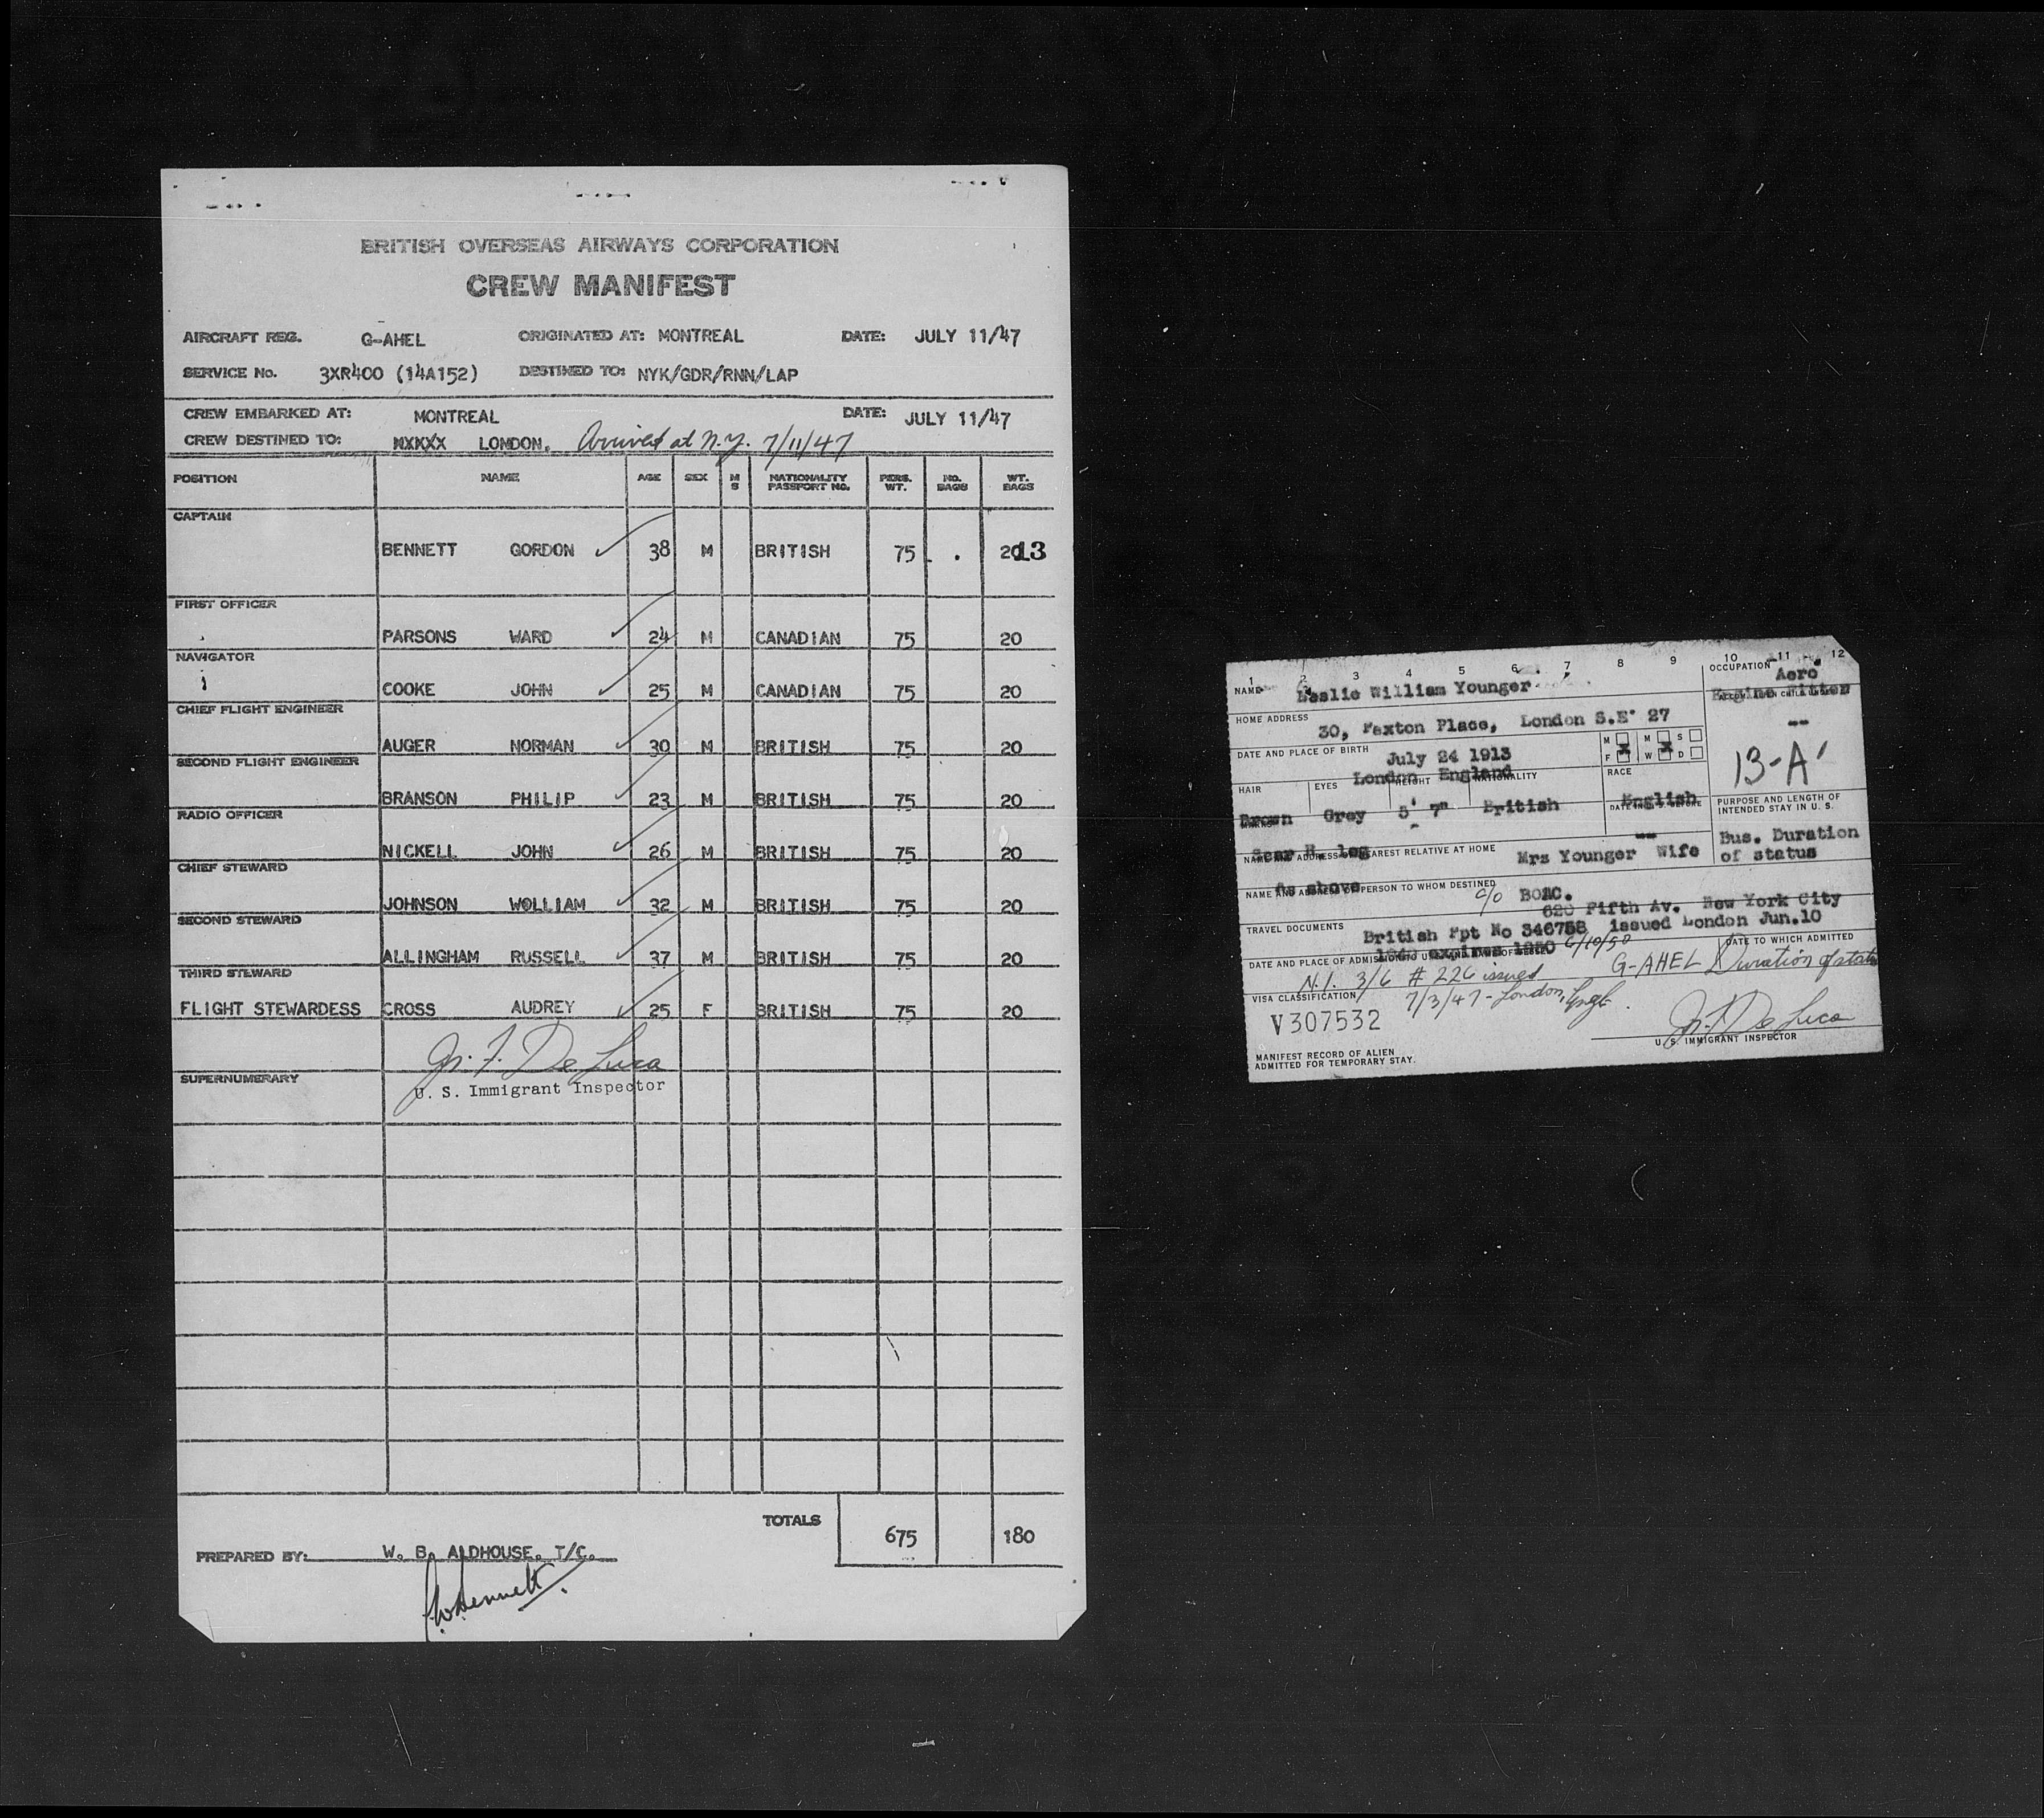 BRITISH OVERSEAS AIRWAYS CORPORATION
CREW MANIFEST
AIRCRAFT REG. G-AHEL ORIGINATED AT: MONTREAL DATE: JULY 11/47
SERVICE No. 3XR400 (14A152) DESTINED TO: NYK/GDR/RNN/LAP
CREW EMBARKED AT: MONTREAL DATE: JULY 11/47
CREW DESTINED TO: LONDON. Arrived at N.Y. 7/11/47
POSITION NAME AGE SEX M S NATIONALITY PASSPORT NO. PERS. WT. NO. BAGS WT. BAGS
CAPTAIN
BENNETT GORDON 38 M BRITISH 75 2013
FIRST OFFICER
PARSONS WARD 24 M CANADIAN 75 20
NAVIGATOR
COOKE JOHN 25 M CANADIAN 75 20
CHIEF FLIGHT ENGINEER
AUGER NORMAN 30 M BRITISH 75 20
SECOND FLIGHT ENGINEER
BRANSON PHILIP 23 M BRITISH 75 20
RADIO OFFICER
NICKELL JOHN 26 M BRITISH 75 20
CHIEF STEWARD
JOHNSON WOLLIAM 32 M BRITISH 75 20
SECOND STEWARD
ALLINGHAM RUSSELL 37 M BRITISH 75 20
THIRD STEWARD
FLIGHT STEWARDESS CROSS AUDREY 25 F BRITISH 75 20
De Luca
U. S. Immigrant Inspector
SUPERNUMERARY
TOTALS 675 180
PREPARED BY: W. B. ALDHOUSE. T/C.
Bennett
1 2 3 4 5 6 7 8 9 10 11 12
NAME Leslie William Younger
OCCUPATION Aero
Engine Fitter
HOME ADDRESS 30, Paxton Place, London S.E. 27
--
DATE AND PLACE OF BIRTH July 24 1913
London England
M F M S W D
13-A
HAIR EYES HEIGHT NATIONALITY RACE
Brown Grey 5' 7" British English
PURPOSE AND LENGTH OF INTENDED STAY IN U. S.
Bus. Duration
of status
Scar R. leg
NAME AND ADDRESS OF NEAREST RELATIVE AT HOME Mrs Younger Wife
As above
NAME AND ADDRESS OF PERSON TO WHOM DESTINED c/o BOAC.
620 Fifth Av. New York City
TRAVEL DOCUMENTS British Ppt No 346758 issued London Jun.10
expires 1950 6/10/50
DATE AND PLACE OF ADMISSION
DATE TO WHICH ADMITTED
G-AHEL Duration of status
N.I. 3/6 # 226 issued
7/3/47 - London, Engl.
VISA CLASSIFICATION
V307532
De Luca
U. S. IMMIGRANT INSPECTOR
MANIFEST RECORD OF ALIEN
ADMITTED FOR TEMPORARY STAY.